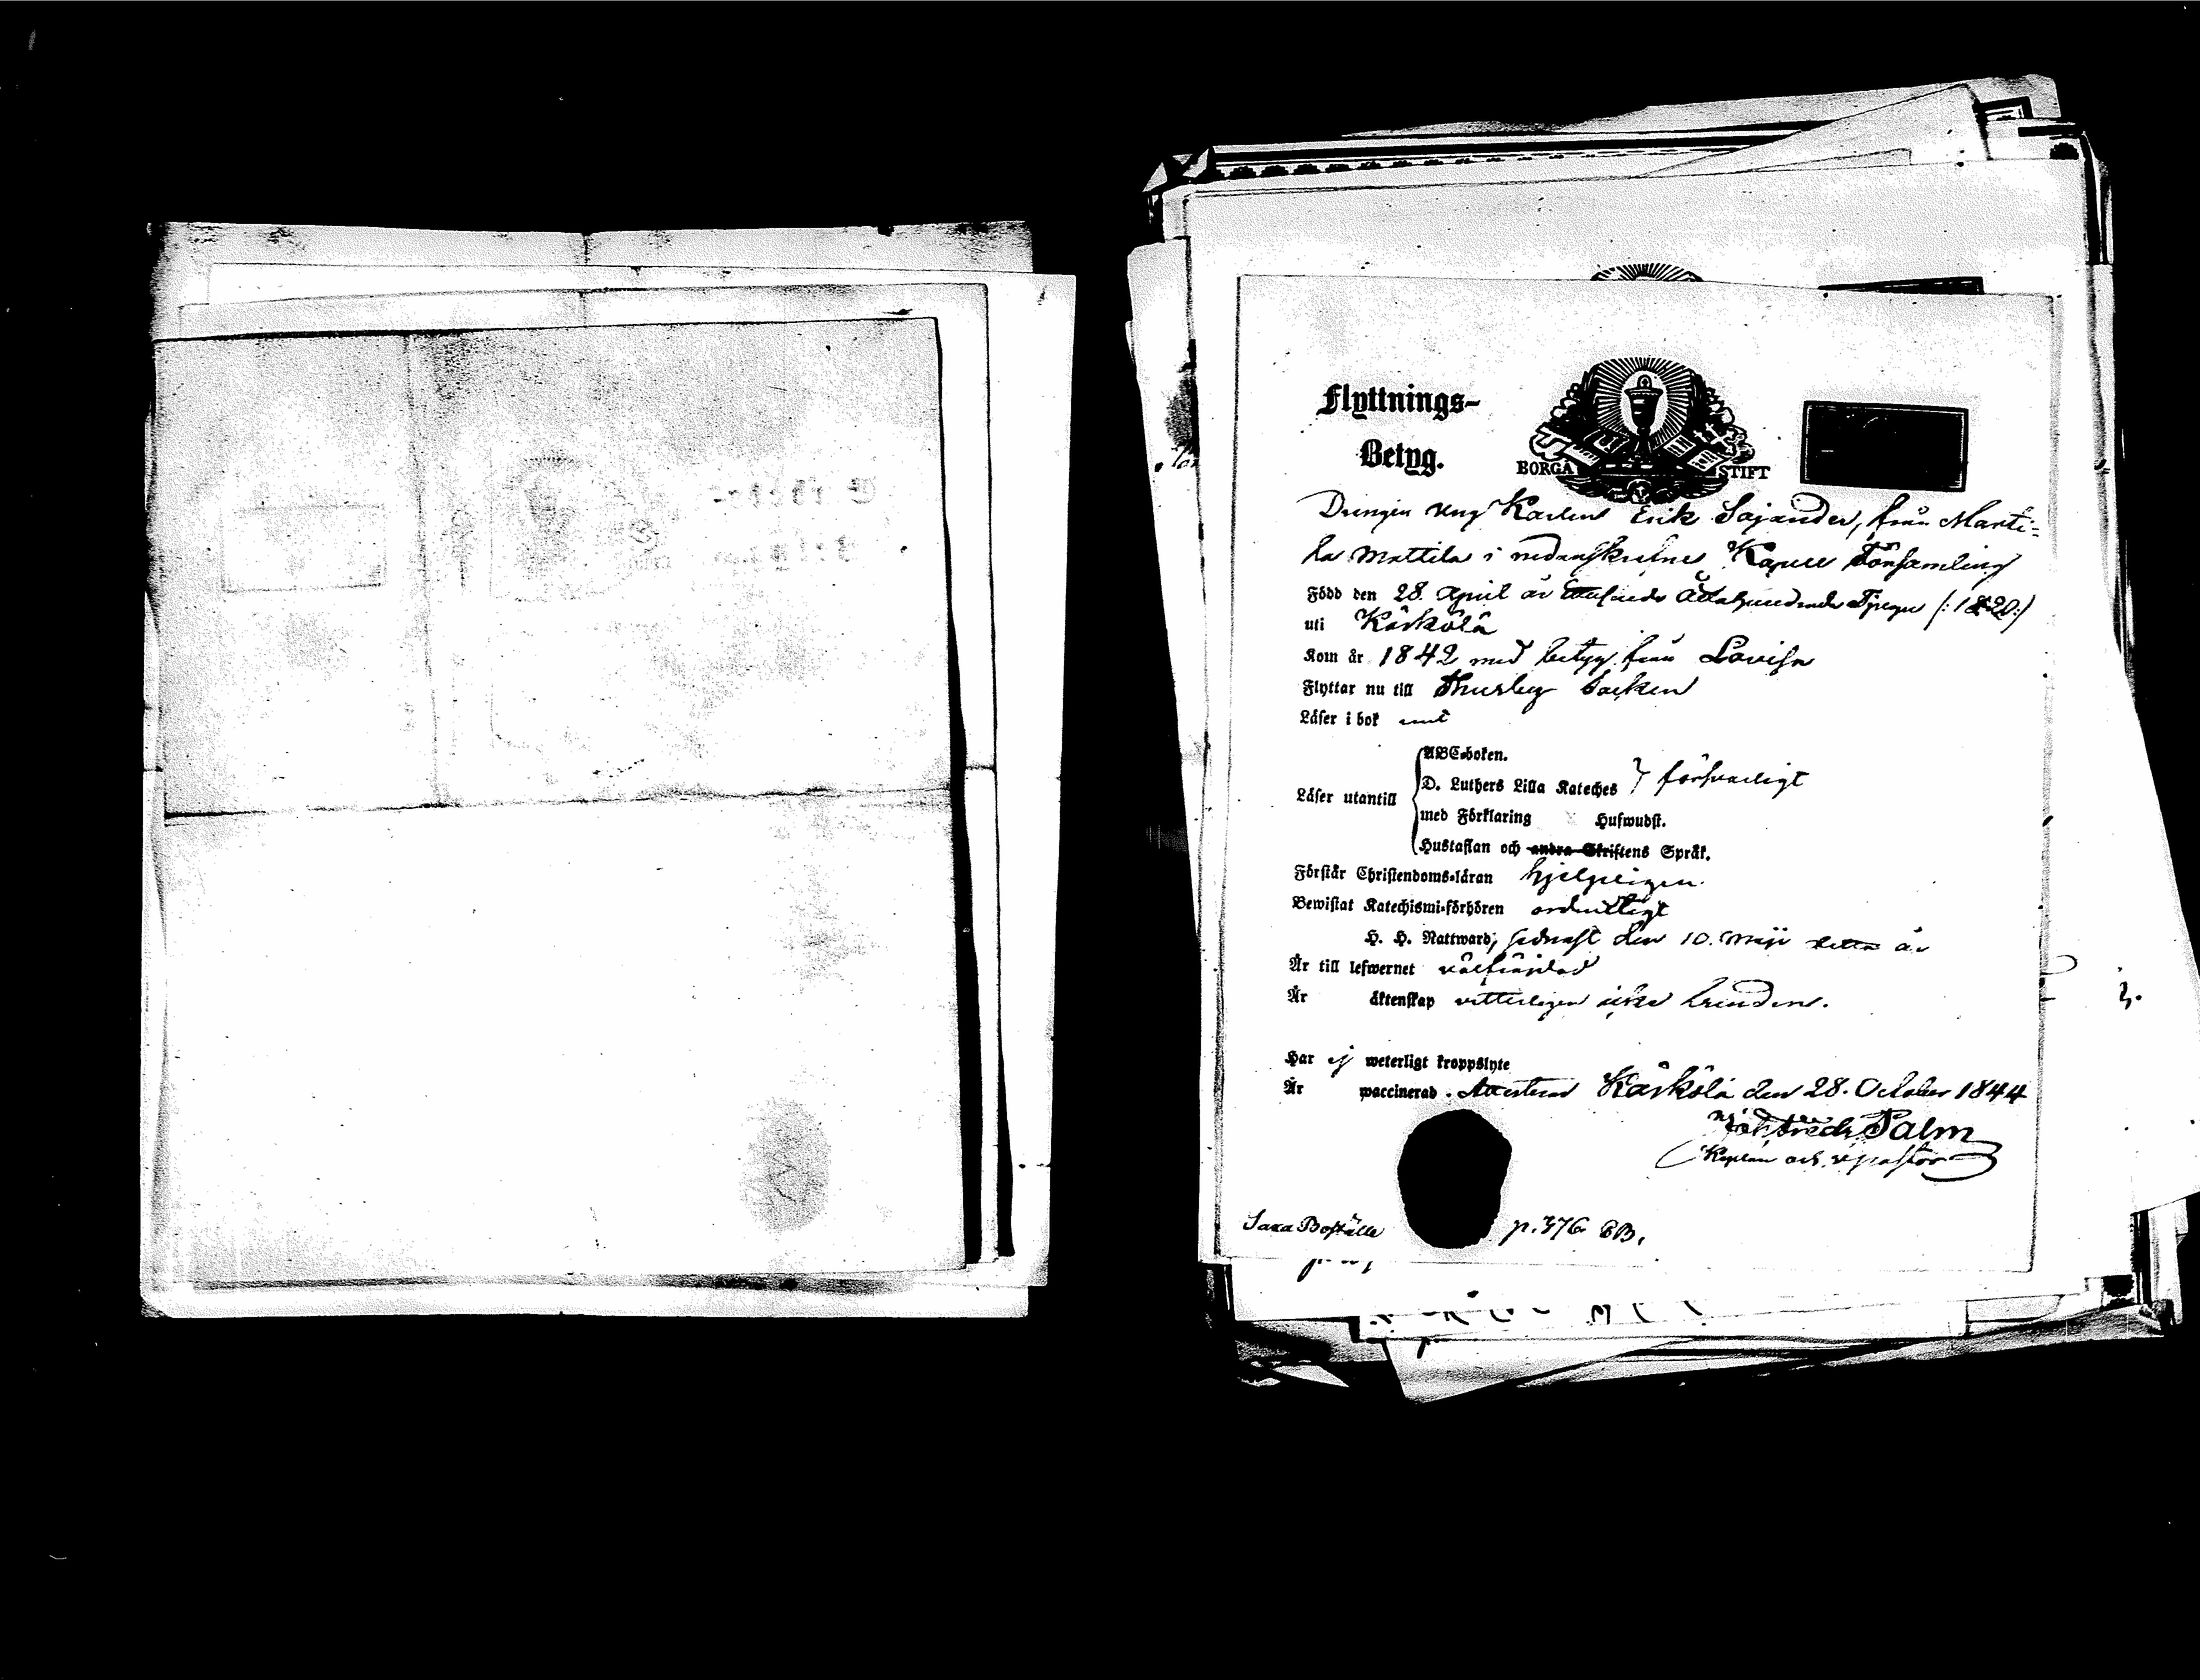 Flyttnings-
Betyg.
BORGÅ STIFT
Drengen ung Karlen Erik Sajander, från Marti-
la Mattila i nedanskrefne Kapell Församling
Född den 28. April år Attahundrade Tjugu (: 1820 :)
uti Kärkölä
Kom år 1842 med betyg från Lovisa
Flyttar nu till Thusby Socken
Läser i bok ent
ABC-boken.
D. Luthers Lilla Kateches } försvarligt
Läser utantill
med Förklaring Hufwudst.
Hustaflan och andra Skriftens Språk.
Förstår Christendoms-läran hjelpligen.
Bewistat Katechismi-förhören ordentligt
H. H. Nattward, sednast den 10. Maji detta år
Är till lefwernet välfrejdad
Är äktenskap vetterligen icke bunden.
Har ej weterligt kroppslyte
Är vaccinerad. Attesterad Kärkölä den 28. October 1844
Palm
Kaplan och v pastor
Saxa Boställe p. 376 BB.